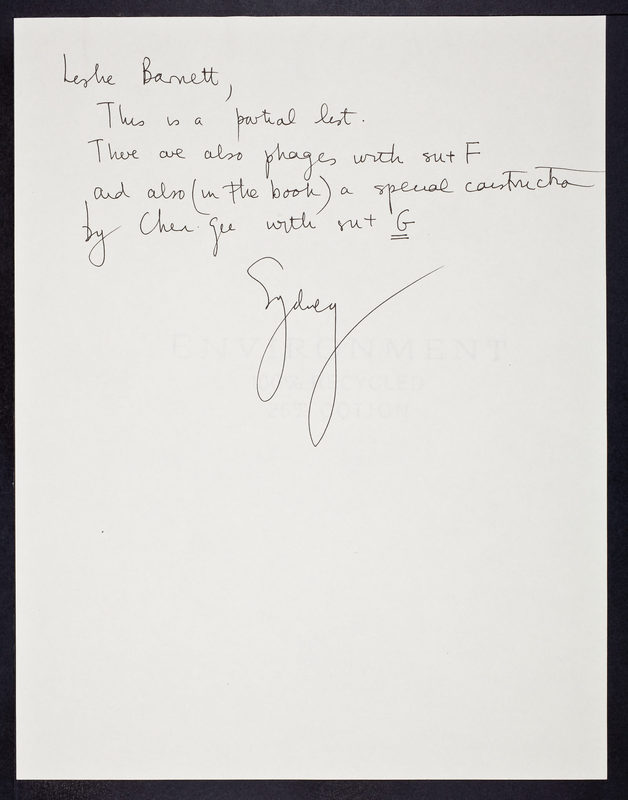 Leslie Barnett,
This is a partial list.
There are also phages with su+ F
and also (in the book) a special construction
by Chen Gee with su+ G
Sydney
ENVIRONMENT
RECYCLED
25% COTTON